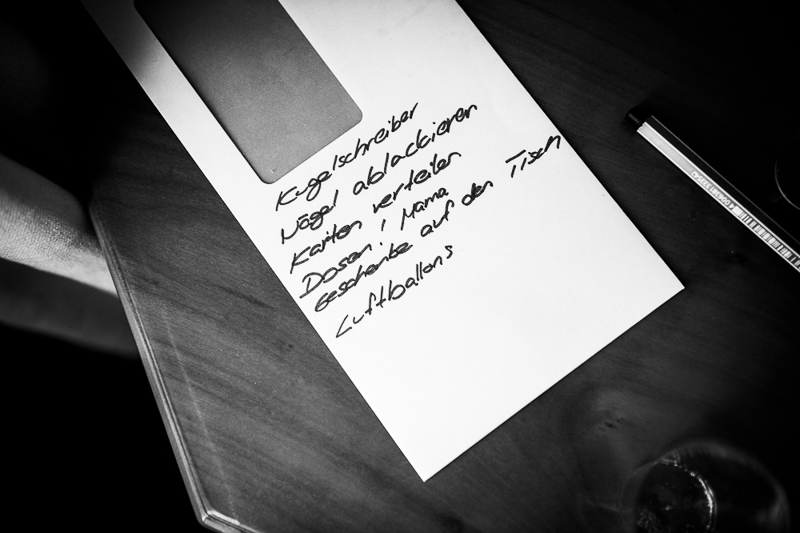 Kugelschreiber
Nägel ablackieren
Karten verteilen
Dosen! Mama
Geschenke auf den Tisch
Luftballons